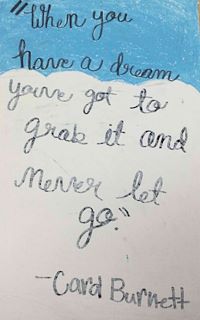 "When you
have a dream
you've got to
grab it and
never let
go."
-Carol Burnett